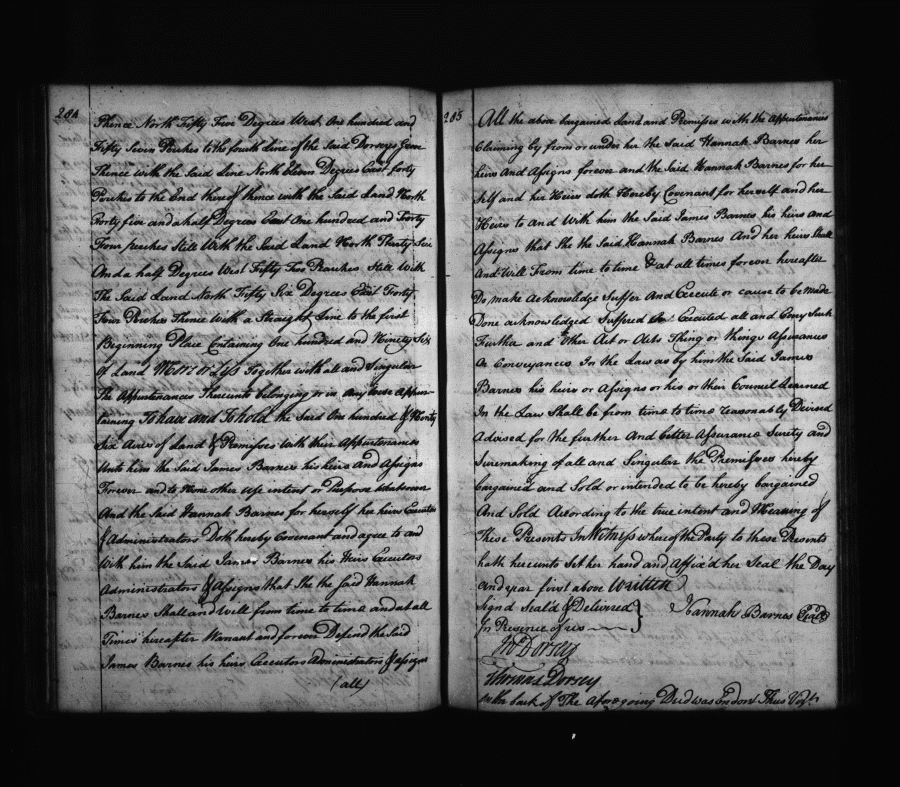 284
Thence North Fifty Five Degrees West One hundred and
Fifty Seven Perches to the fourth line of the Said Dorseys
Thence with the Said Line North Eleven Degrees East forty
Perches to the End thereof thence with the Said Land North
Forty five and a half Degrees East One hundred and Forty
Four perches Still With the Said Land North Thirty Six
And a half Degrees West Fifty Two Pearches Still With
The Said Land North Fifty Six Degrees East Forty
Four Perches Thence With a Straight Line to the first
Beginning Place Containing One hundred and Ninety Six
of Land More or Less Together with all and Singular
The Appurtenances Thereunto belonging or in any wise Apper-
taining To have and To hold the Said One hundred & Ninty
Six Acres of Land & Premisses With their Appurtenances
Unto him the Said James Barnes his heirs And Assigns
Forever and to None other use intent or Purpose whatsoever
And the Said Hannah Barnes for herself her heirs Executors
& Administrators Doth hereby Covenant and agree to and
With him the Said James Barnes his Heirs Executors
Administrators & Assigns that She the Said Hannah
Barnes Shall and Will from time to time and at all
Times hereafter Warrant and forever Defend the Said
James Barnes his heirs Executors Administrators & Assigns
(all)
285
All the above bargained Land and Premisses with the Appurtenances
Claiming by from or under her the Said Hannah Barnes her
heirs And Assigns forever and the Said Hannah Barnes for her
self and her Heirs doth Hereby Covenant for herself and her
Heirs to and With him the Said James Barnes his heirs and
Assigns that She the Said Hannah Barnes And her heirs Shall
And Will From time to time & at all times forever hereafter
Do make Acknowledge Suffer And Execute or cause to be Made
Done acknowledged Suffred Or Executed all and Every Such
Further and Other Act or Acts Thing or things Assurances
Or Conveyances In the Law as by him the Said James
Barnes his heirs or Assigns or his or their Council Learned
In the Law Shall be from time to time reasonably Devised
Advised for the further And better Assurance Surety and
Suremaking of all and Singular the Premisses hereby
bargained and Sold or intended to be hereby bargained
And Sold According to the true intent and Meaning of
These Presents In Witness whereof the Party to these Presents
hath hereunto Set her hand and Affix'd her Seal the Day
and year first above Written
Sign'd Seal'd & Delivered } Hannah Barnes Seal
In Presence of us
Thomas Dorsey
On the back of The Aforegoing Deed was Endors'd Thus Vizt